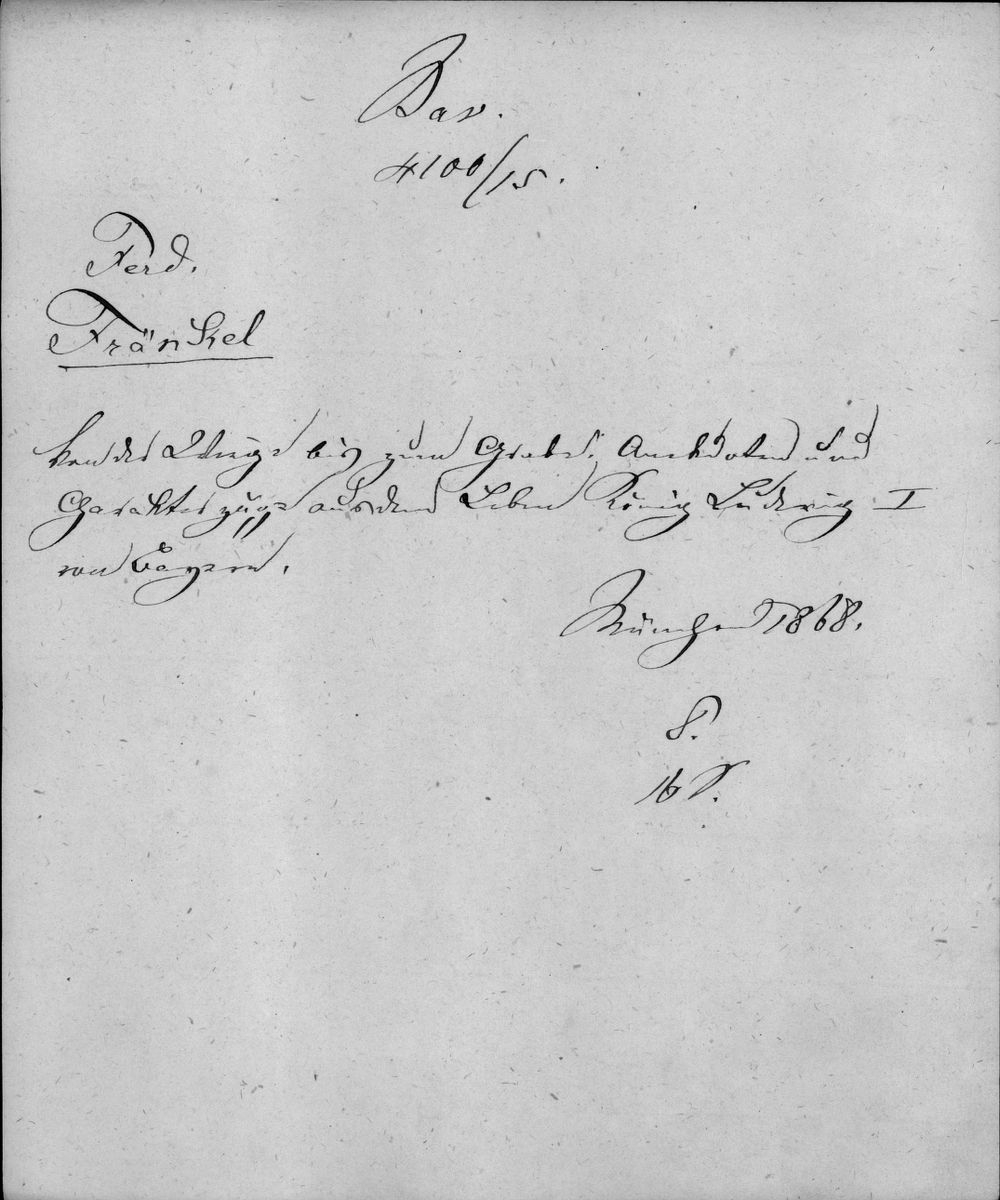 Bav.
4100/15.
Ferd.
Fränkel
Von der Wiege bis zum Grabe. Anekdoten und
Charakterzüge aus dem Leben König Ludwig I
von Bayern.
München 1868.
8.
16 S.